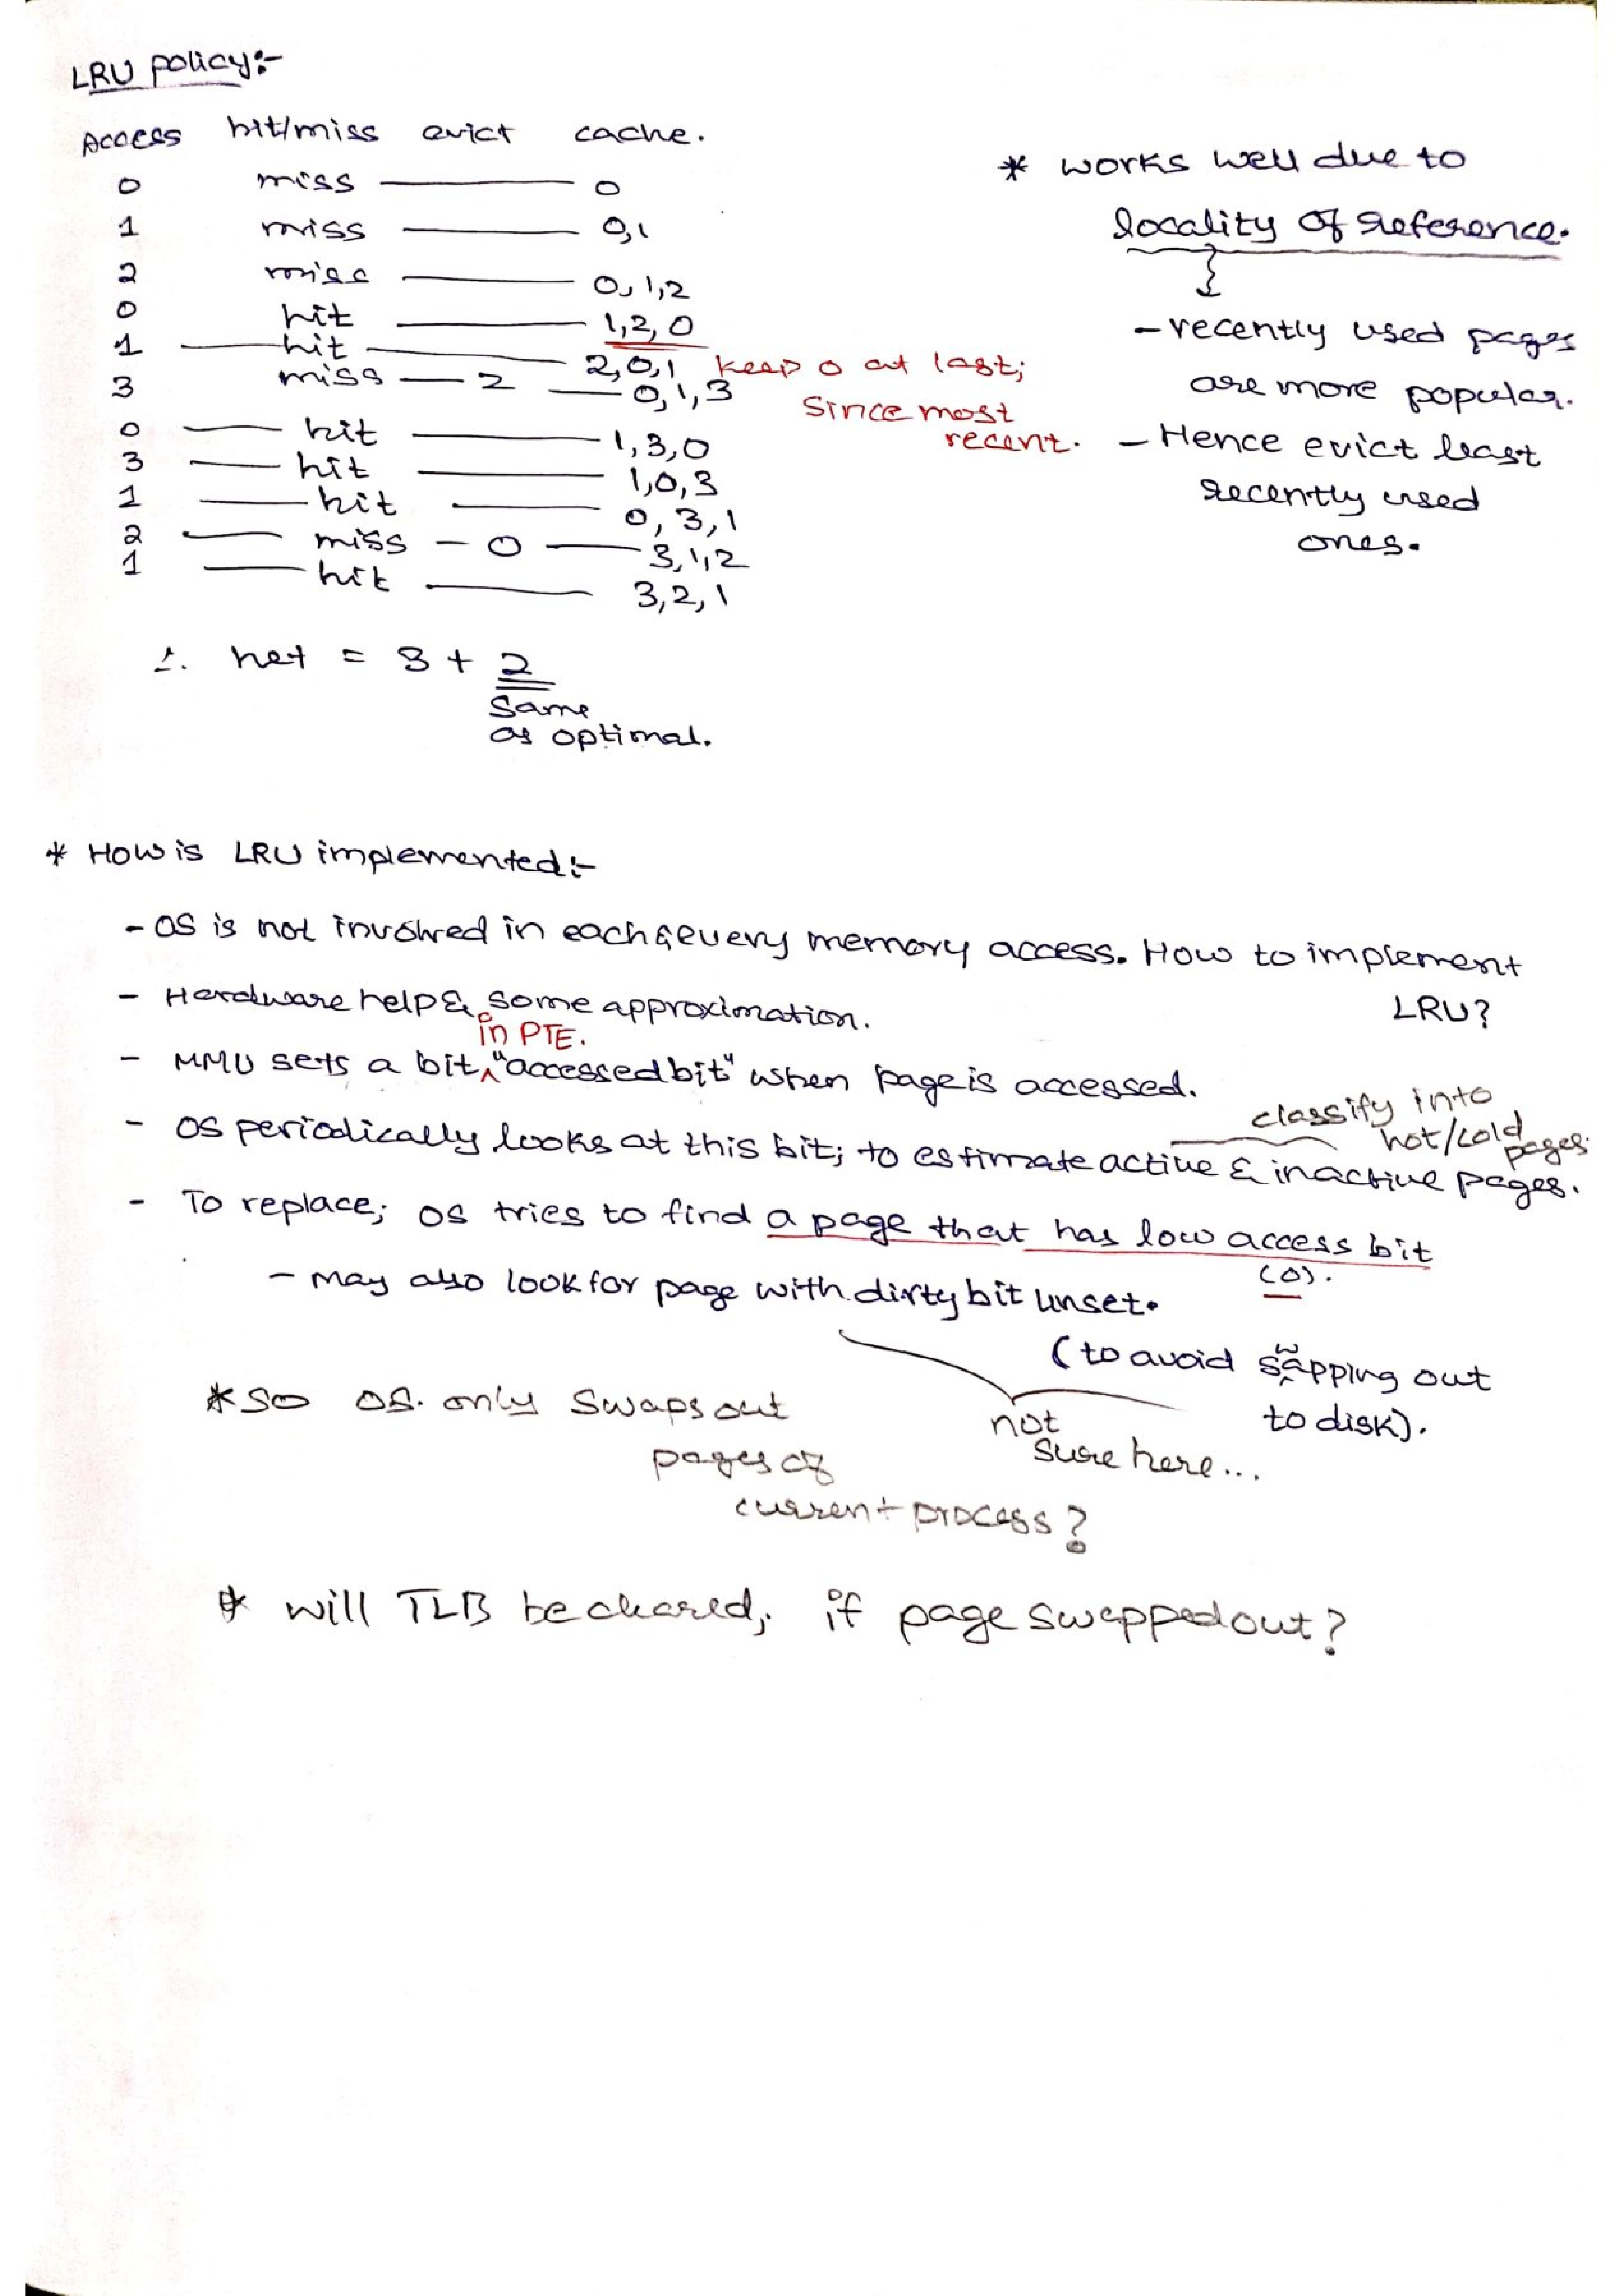 LRU policy:-
Access hit/miss evict cache.
0 miss — 0
1 miss — 0,1
2 miss — 0,1,2
0 hit — 1,2,0
1 — hit — 2,0,1 keep 0 at last;
3 miss — 2 — 0,1,3 since most
recent.
0 — hit — 1,3,0
3 — hit — 1,0,3
1 — hit — 0,3,1
2 — miss — 0 — 3,1,2
1 — hit — 3,2,1
∴ net = 3 + 2
same
as optimal.
* works well due to
locality of reference.
- recently used pages
are more popular.
- Hence evict least
recently used
ones.
* How is LRU implemented:-
- OS is not involved in each & every memory access. How to implement
LRU?
- Hardware help & some approximation.
in PTE.
- MMU sets a bit ^ "accessed bit" when page is accessed.
classify into
hot/cold
pages.
- OS periodically looks at this bit; to estimate active & inactive pages.
- To replace; OS tries to find a page that has low access bit
(0).
- may also look for page with dirty bit unset.
(to avoid swapping out
to disk).
not
sure here...
* so OS. only swaps out
pages of
current process?
* will TLB be cleared, if page swapped out?